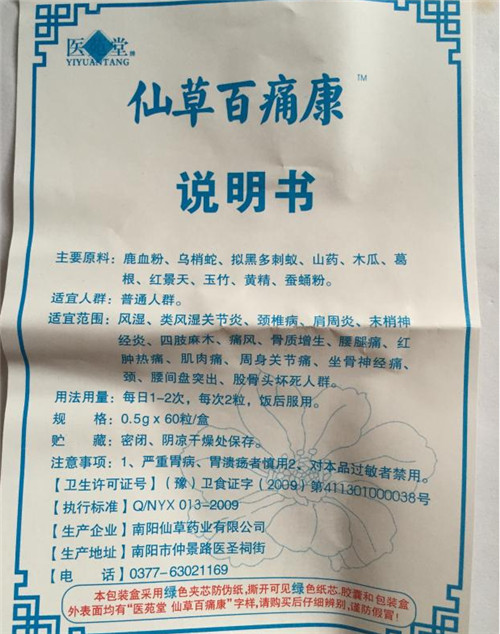 医苑堂牌
YIYUANTANG
仙草百痛康™
说明书
主要原料：鹿血粉、乌梢蛇、拟黑多刺蚁、山药、木瓜、葛
根、红景天、玉竹、黄精、蚕蛹粉。
适宜人群：普通人群。
适宜范围：风湿、类风湿关节炎、颈椎病、肩周炎、末梢神
经炎、四肢麻木、痛风、骨质增生、腰腿痛、红
肿热痛、肌肉痛、周身关节痛、坐骨神经痛、
颈、腰间盘突出、股骨头坏死人群。
用法用量：每日1-2次，每次2粒，饭后服用。
规　　格：0.5g x 60粒/盒
贮　　藏：密闭、阴凉干燥处保存。
注意事项：1、严重胃病、胃溃疡者慎用2、对本品过敏者禁用。
【卫生许可证号】（豫）卫食证字（2009）第411301000038号
【执行标准】Q/NYX 013-2009
【生产企业】南阳仙草药业有限公司
【生产地址】南阳市仲景路医圣祠街
【电　　话】0377-63021169
本包装盒采用绿色夹芯防伪纸，撕开可见绿色纸芯.胶囊和包装盒
外表面均有“医苑堂 仙草百痛康”字样，请购买后仔细辨别，谨防假冒！